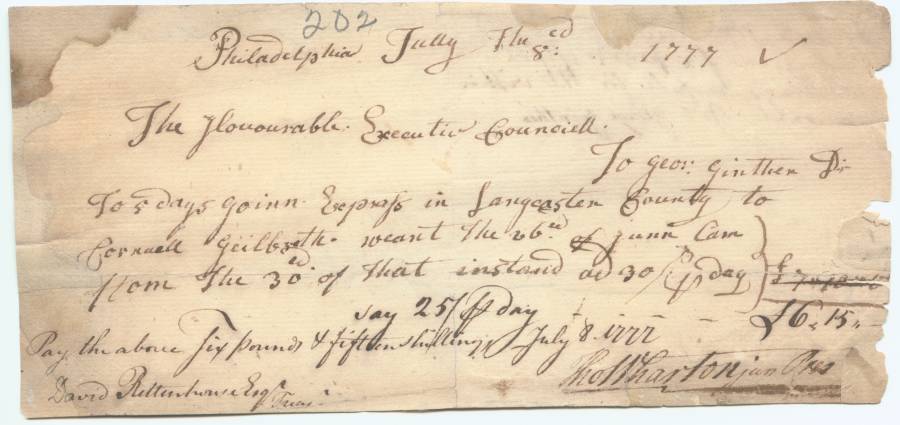 202
Philadelphia Jully the 8:ed 1777 ✓
The Honourable Executiv Counciell.
To Geor: Ginther Dr
To 5 days goinn Express in Langcaster County to
Cornaell Geilbreth weant the 26:ed of junn Cam
Hom the 30:ed of that instand ad 30/ ⅌ day } £ 7"10"
say 25/ ⅌ day £6"15"
Pay the above Six pounds & fifteen shillings July 8. 1777
Tho Wharton jun Pres
David Rittenhouse Esqr
Treasr